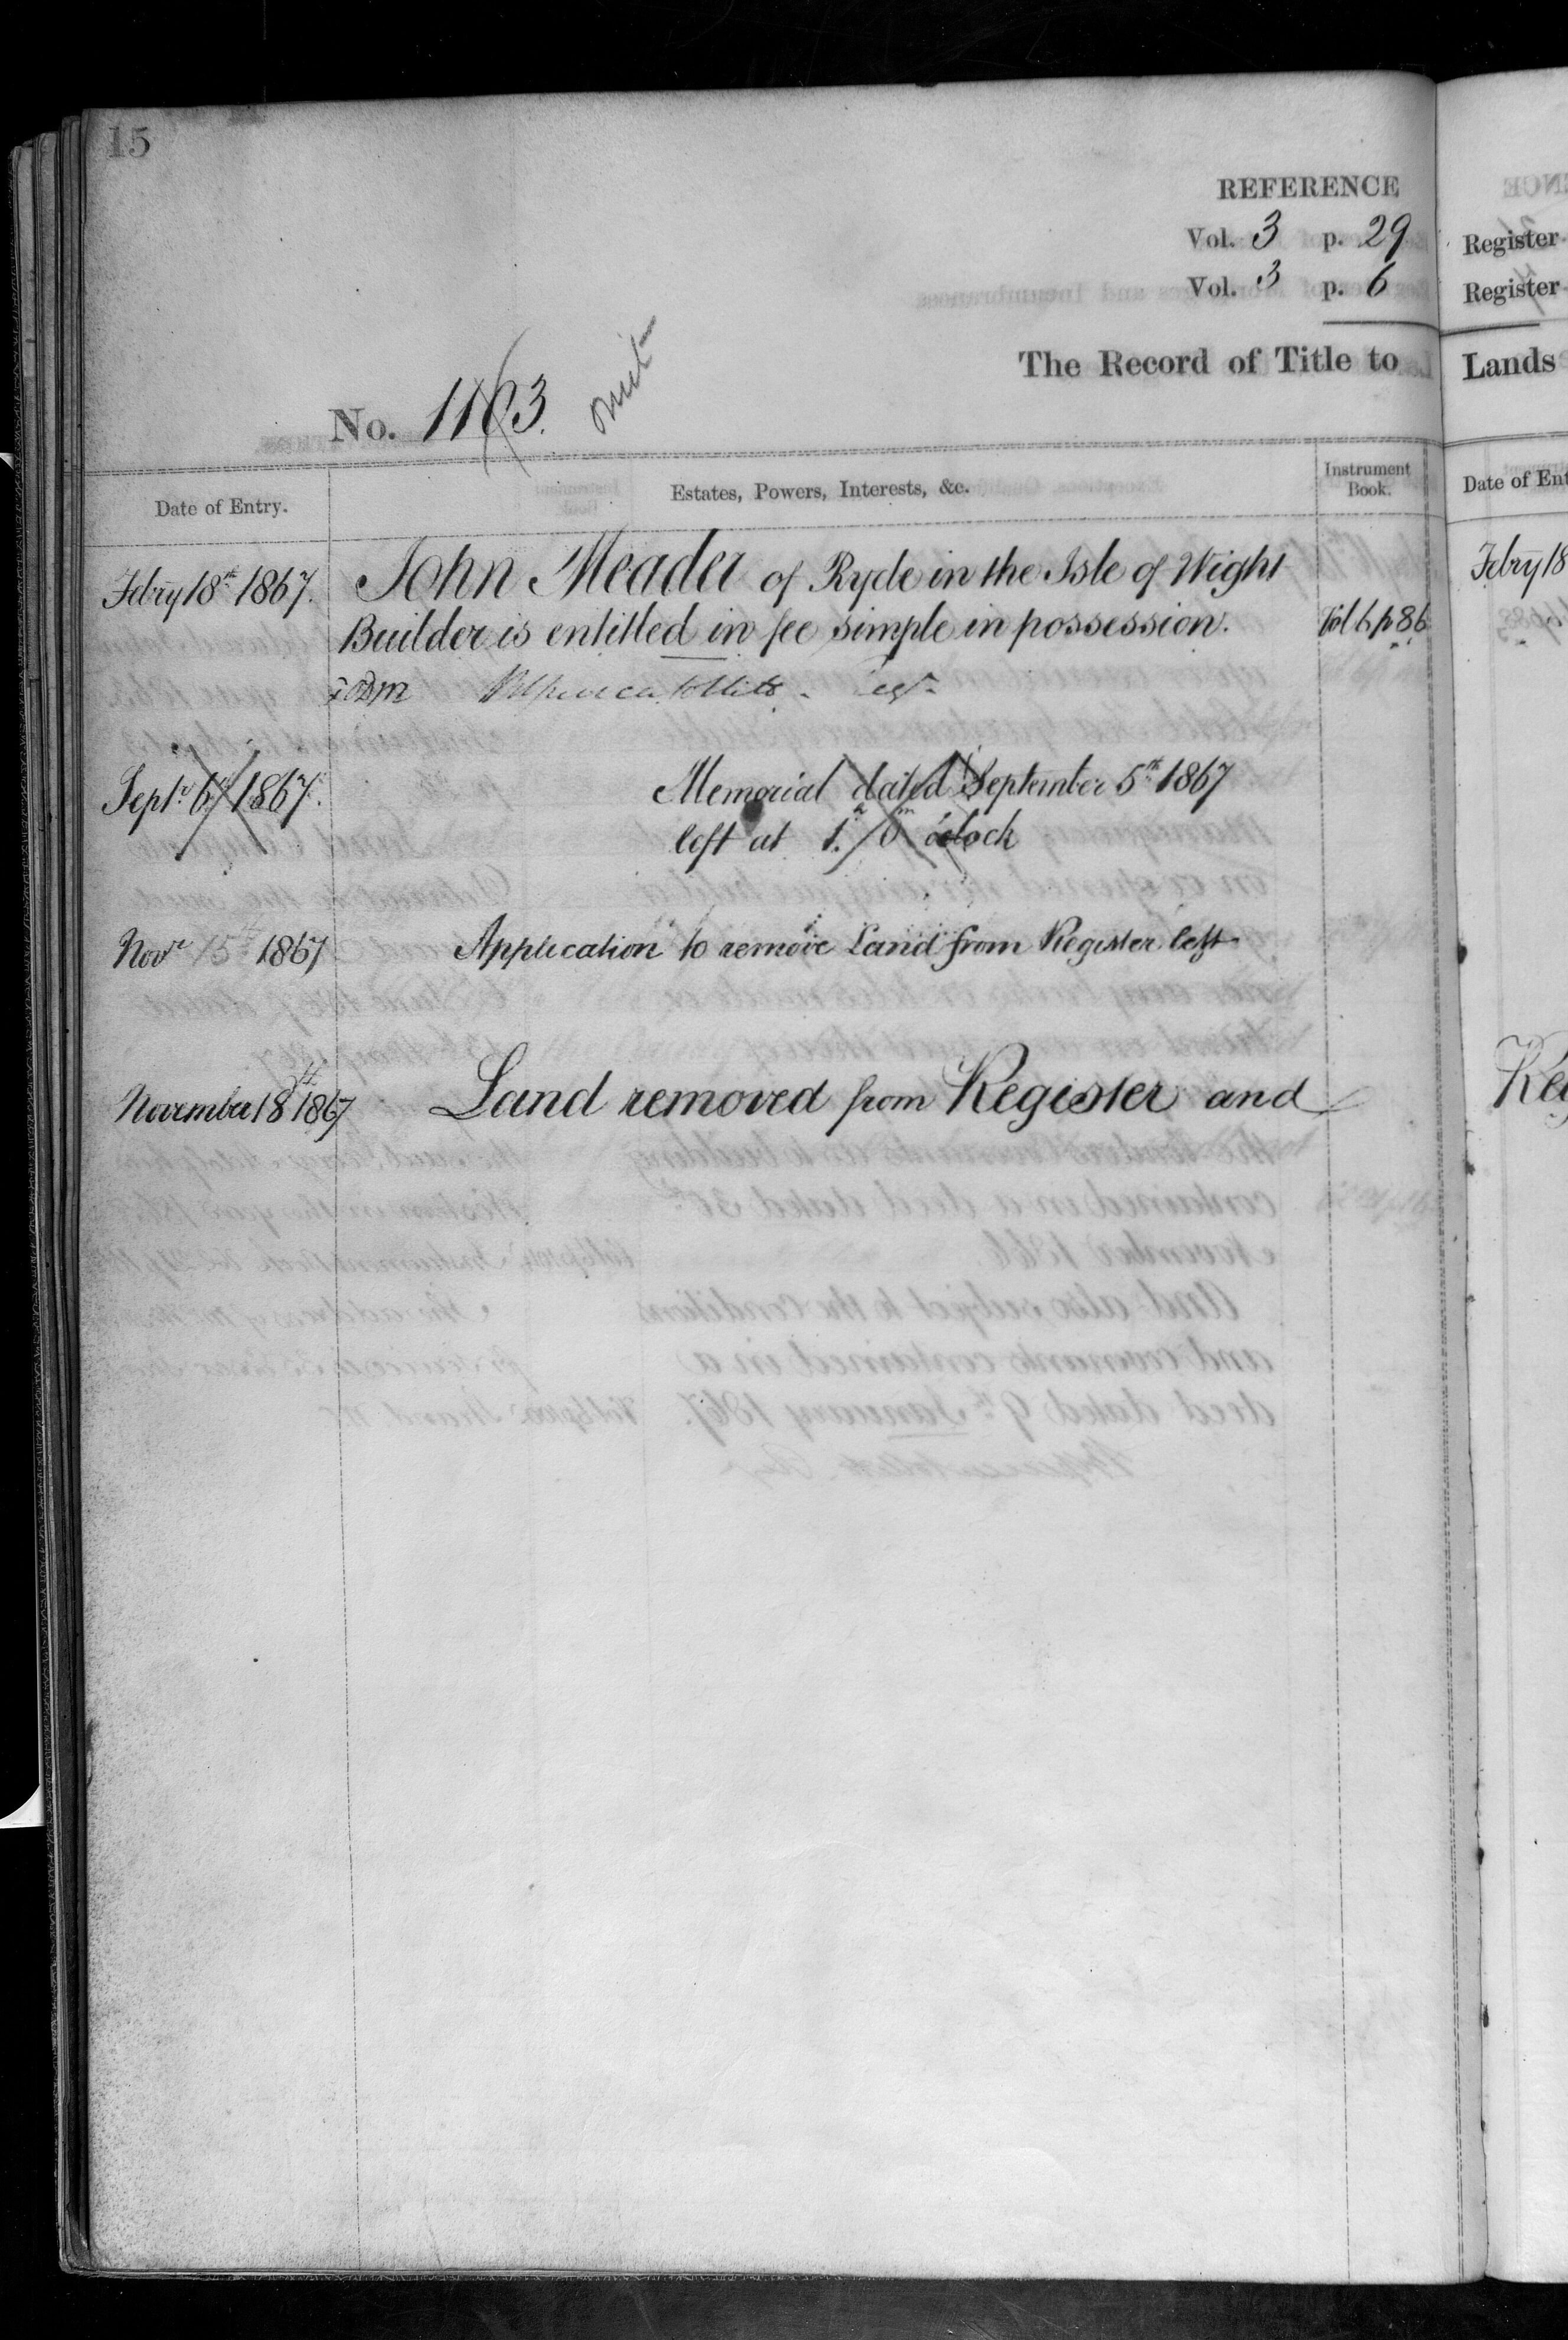 15
REFERENCE
Vol. 3 p. 29
Vol. 3 p. 6
The Record of Title to
No. 1163. omit
Date of Entry.
Estates, Powers, Interests, &c.
Instrument Book.
Febry 18th 1867.
John Meader of Ryde in the Isle of Wight
Builder is entitled in fee simple in possession.
Vol 6 p 86
Septr 6th 1867.
Memorial dated September 5th 1867
left at 1.h 0m o'clock
Novr 15th 1867
Application to remove Land from Register left
November 18th 1867
Land removed from Register and
Register
Register
Lands
Date of Ent
Febry 18
Reg